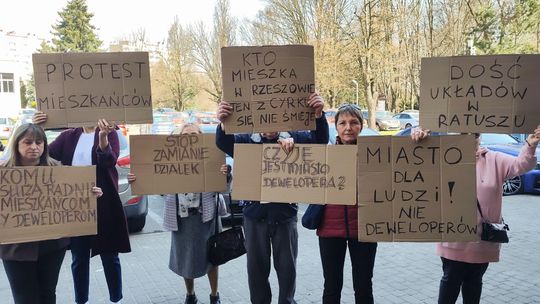 PROTEST
MIESZKAŃCÓW
KTO
MIESZKA
W RZESZOWIE
TEN Z CYRKU
SIĘ NIE ŚMIEJE
DOŚĆ
UKŁADÓW
W
RATUSZU
KOMU
SŁUŻĄ RADNI
MIESZKAŃCOM
CZY DEWELOPEROM
STOP
ZAMIANIE
DZIAŁEK
CZYJE
JEST MIASTO
DEWELOPERA?
MIASTO
DLA
LUDZI!
NIE
DEWELOPERÓW